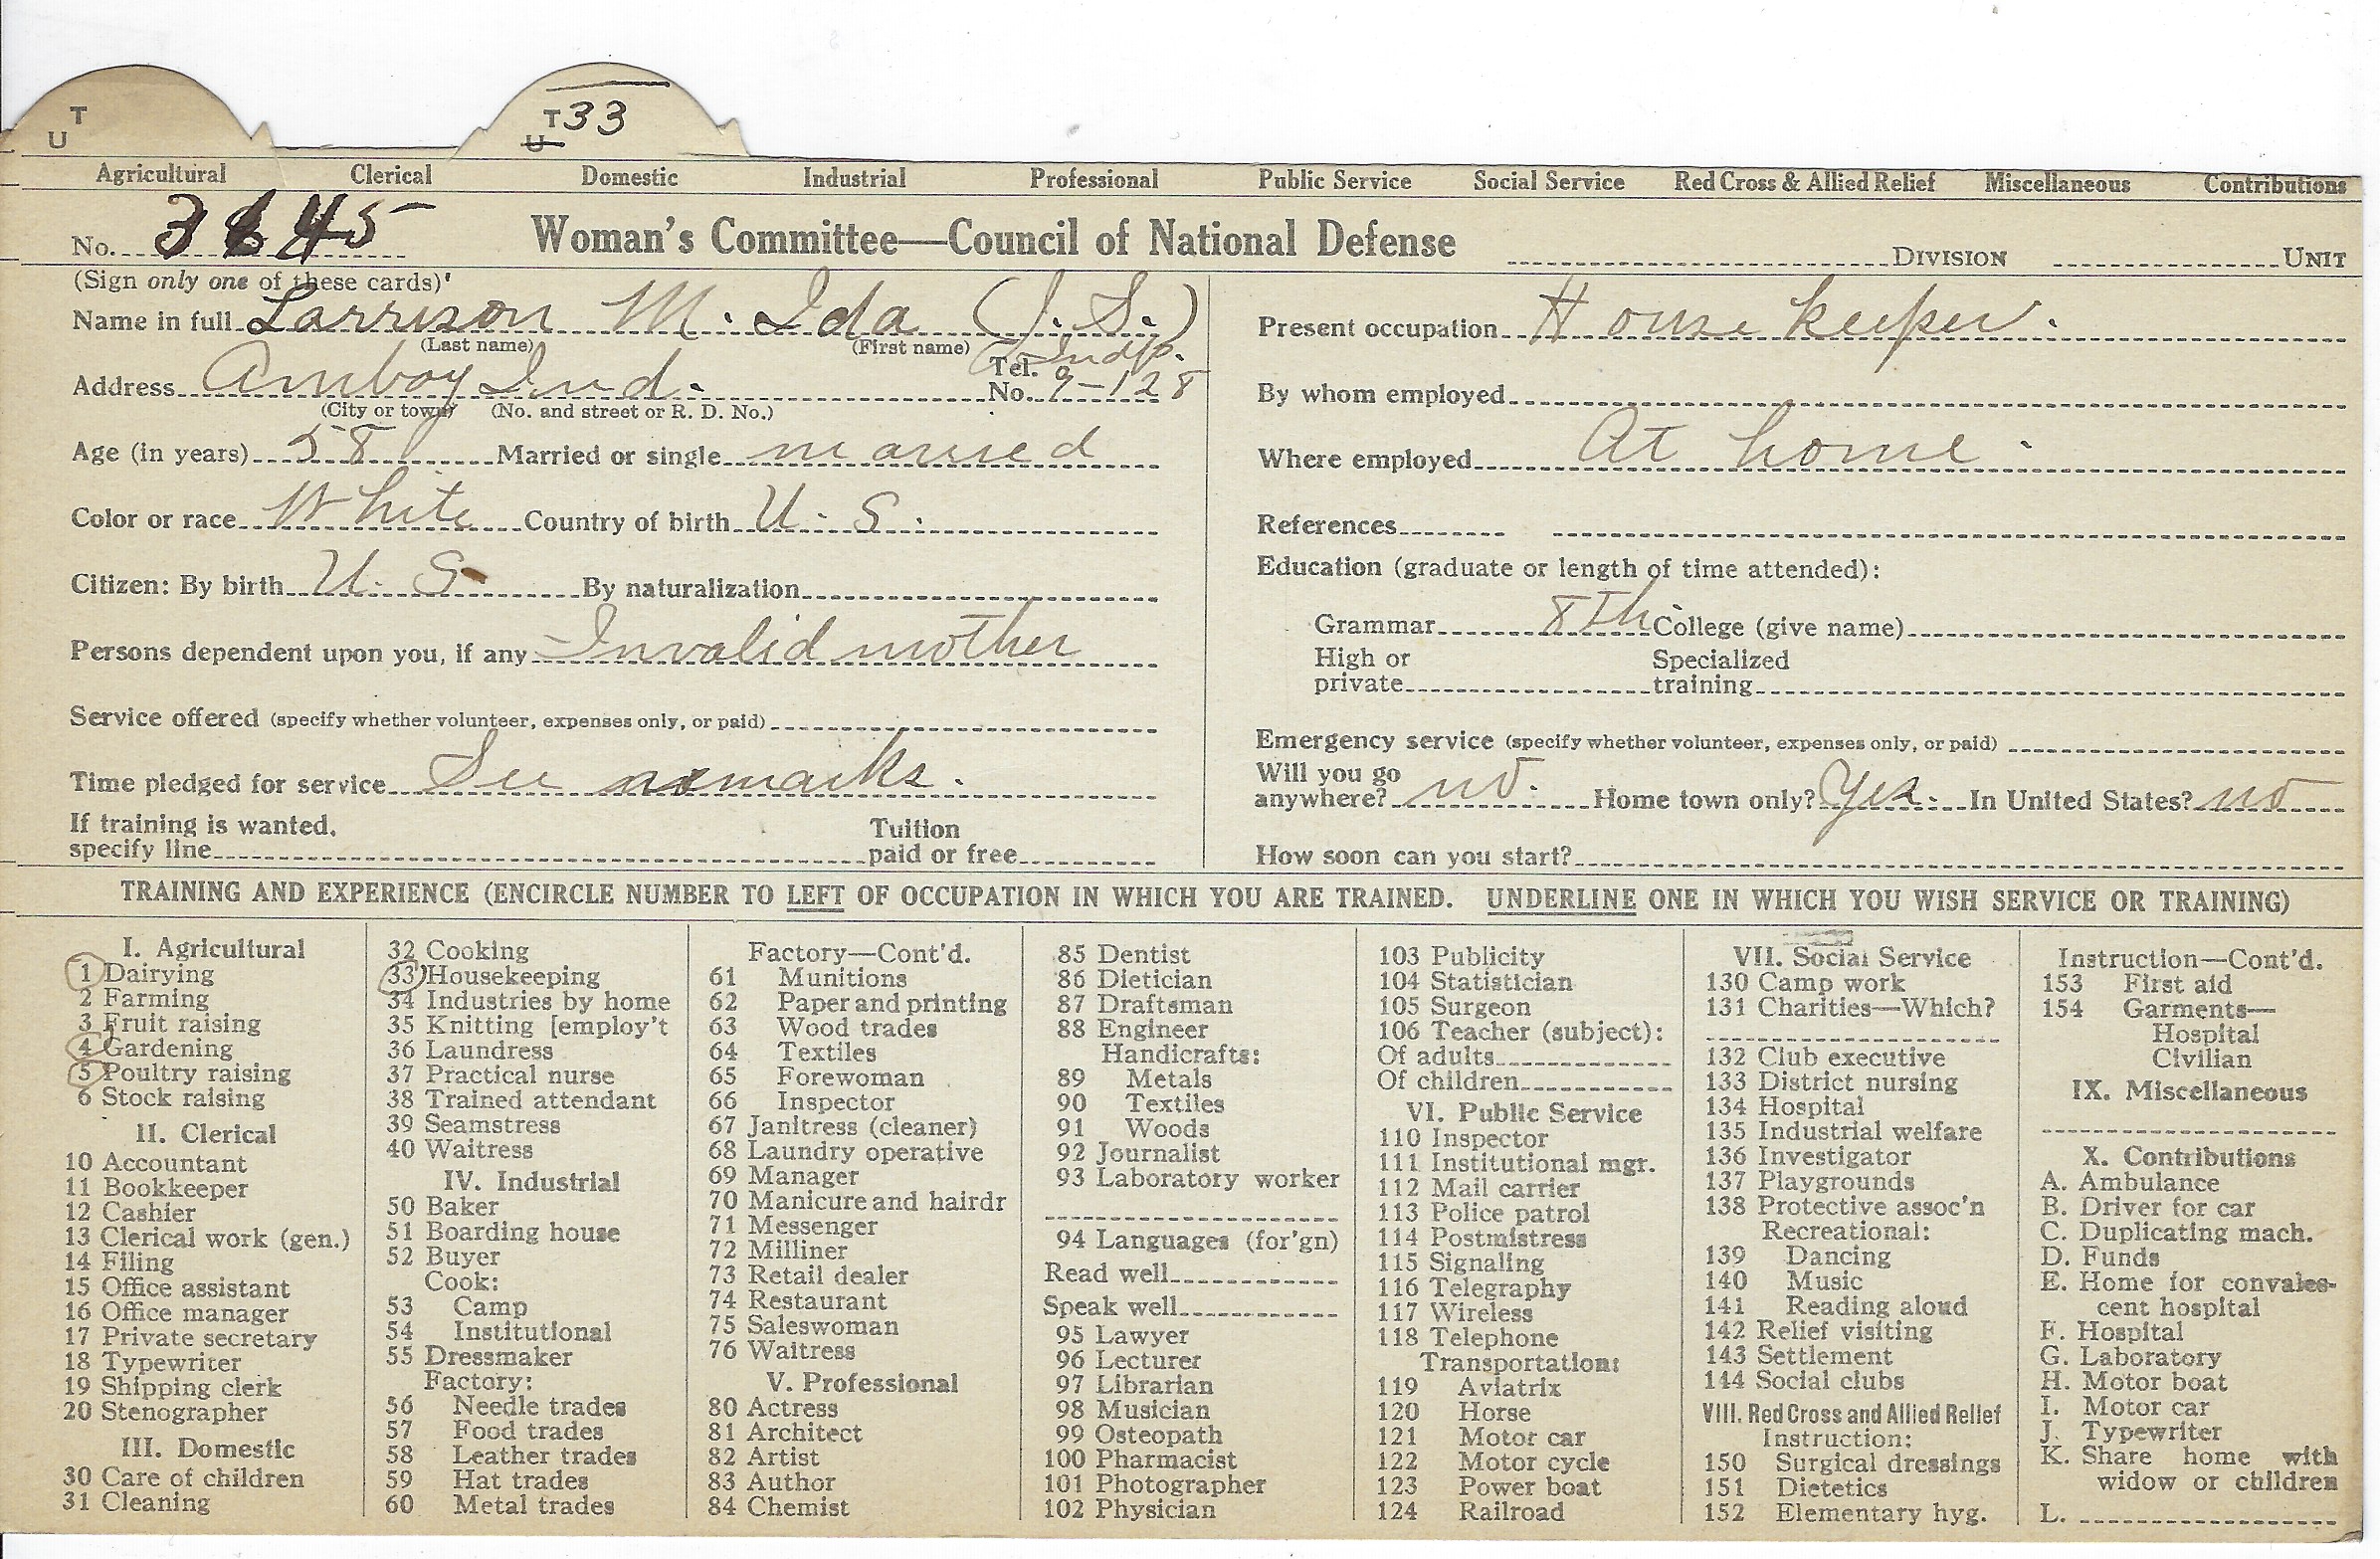 T
U
T33
U
Agricultural Clerical Domestic Industrial Professional Public Service Social Service Red Cross & Allied Relief Miscellaneous Contributions
No. 45 Woman's Committee—Council of National Defense DIVISION UNIT
(Sign only one of these cards)
Name in full Larrison M. Ida (J. S.)
(Last name) (First name)
Address Amboy Ind. Tel. No. Indp. 9-128
(City or town) (No. and street or R. D. No.)
Age (in years) 58 Married or single married
Color or race White Country of birth U. S.
Citizen: By birth U. S. By naturalization
Persons dependent upon you, if any Invalid mother
Service offered (specify whether volunteer, expenses only, or paid)
Time pledged for service See remarks.
If training is wanted, specify line Tuition paid or free
Present occupation House keeper.
By whom employed
Where employed At home.
References
Education (graduate or length of time attended):
Grammar 8th College (give name)
High or private Specialized training
Emergency service (specify whether volunteer, expenses only, or paid)
Will you go anywhere? no. Home town only? Yes. In United States? no
How soon can you start?
TRAINING AND EXPERIENCE (ENCIRCLE NUMBER TO LEFT OF OCCUPATION IN WHICH YOU ARE TRAINED. UNDERLINE ONE IN WHICH YOU WISH SERVICE OR TRAINING)
I. Agricultural
1 Dairying
2 Farming
3 Fruit raising
4 Gardening
5 Poultry raising
6 Stock raising
II. Clerical
10 Accountant
11 Bookkeeper
12 Cashier
13 Clerical work (gen.)
14 Filing
15 Office assistant
16 Office manager
17 Private secretary
18 Typewriter
19 Shipping clerk
20 Stenographer
III. Domestic
30 Care of children
31 Cleaning
32 Cooking
33 Housekeeping
34 Industries by home
35 Knitting [employ't
36 Laundress
37 Practical nurse
38 Trained attendant
39 Seamstress
40 Waitress
IV. Industrial
50 Baker
51 Boarding house
52 Buyer
Cook:
53 Camp
54 Institutional
55 Dressmaker
Factory:
56 Needle trades
57 Food trades
58 Leather trades
59 Hat trades
60 Metal trades
Factory—Cont'd.
61 Munitions
62 Paper and printing
63 Wood trades
64 Textiles
65 Forewoman
66 Inspector
67 Janitress (cleaner)
68 Laundry operative
69 Manager
70 Manicure and hairdr
71 Messenger
72 Milliner
73 Retail dealer
74 Restaurant
75 Saleswoman
76 Waitress
V. Professional
80 Actress
81 Architect
82 Artist
83 Author
84 Chemist
85 Dentist
86 Dietician
87 Draftsman
88 Engineer
Handicrafts:
89 Metals
90 Textiles
91 Woods
92 Journalist
93 Laboratory worker
94 Languages (for'gn)
Read well
Speak well
95 Lawyer
96 Lecturer
97 Librarian
98 Musician
99 Osteopath
100 Pharmacist
101 Photographer
102 Physician
103 Publicity
104 Statistician
105 Surgeon
106 Teacher (subject):
Of adults
Of children
VI. Public Service
110 Inspector
111 Institutional mgr.
112 Mail carrier
113 Police patrol
114 Postmistress
115 Signaling
116 Telegraphy
117 Wireless
118 Telephone
Transportation:
119 Aviatrix
120 Horse
121 Motor car
122 Motor cycle
123 Power boat
124 Railroad
VII. Social Service
130 Camp work
131 Charities—Which?
132 Club executive
133 District nursing
134 Hospital
135 Industrial welfare
136 Investigator
137 Playgrounds
138 Protective assoc'n
Recreational:
139 Dancing
140 Music
141 Reading aloud
142 Relief visiting
143 Settlement
144 Social clubs
VIII. Red Cross and Allied Relief
Instruction:
150 Surgical dressings
151 Dietetics
152 Elementary hyg.
Instruction—Cont'd.
153 First aid
154 Garments—
Hospital
Civilian
IX. Miscellaneous
X. Contributions
A. Ambulance
B. Driver for car
C. Duplicating mach.
D. Funds
E. Home for convales-
cent hospital
F. Hospital
G. Laboratory
H. Motor boat
I. Motor car
J. Typewriter
K. Share home with
widow or children
L.